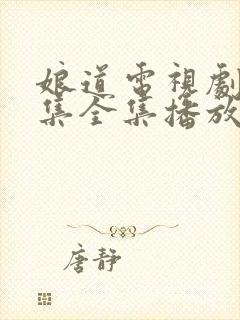 娘道電視劇
集全集播放
唐靜